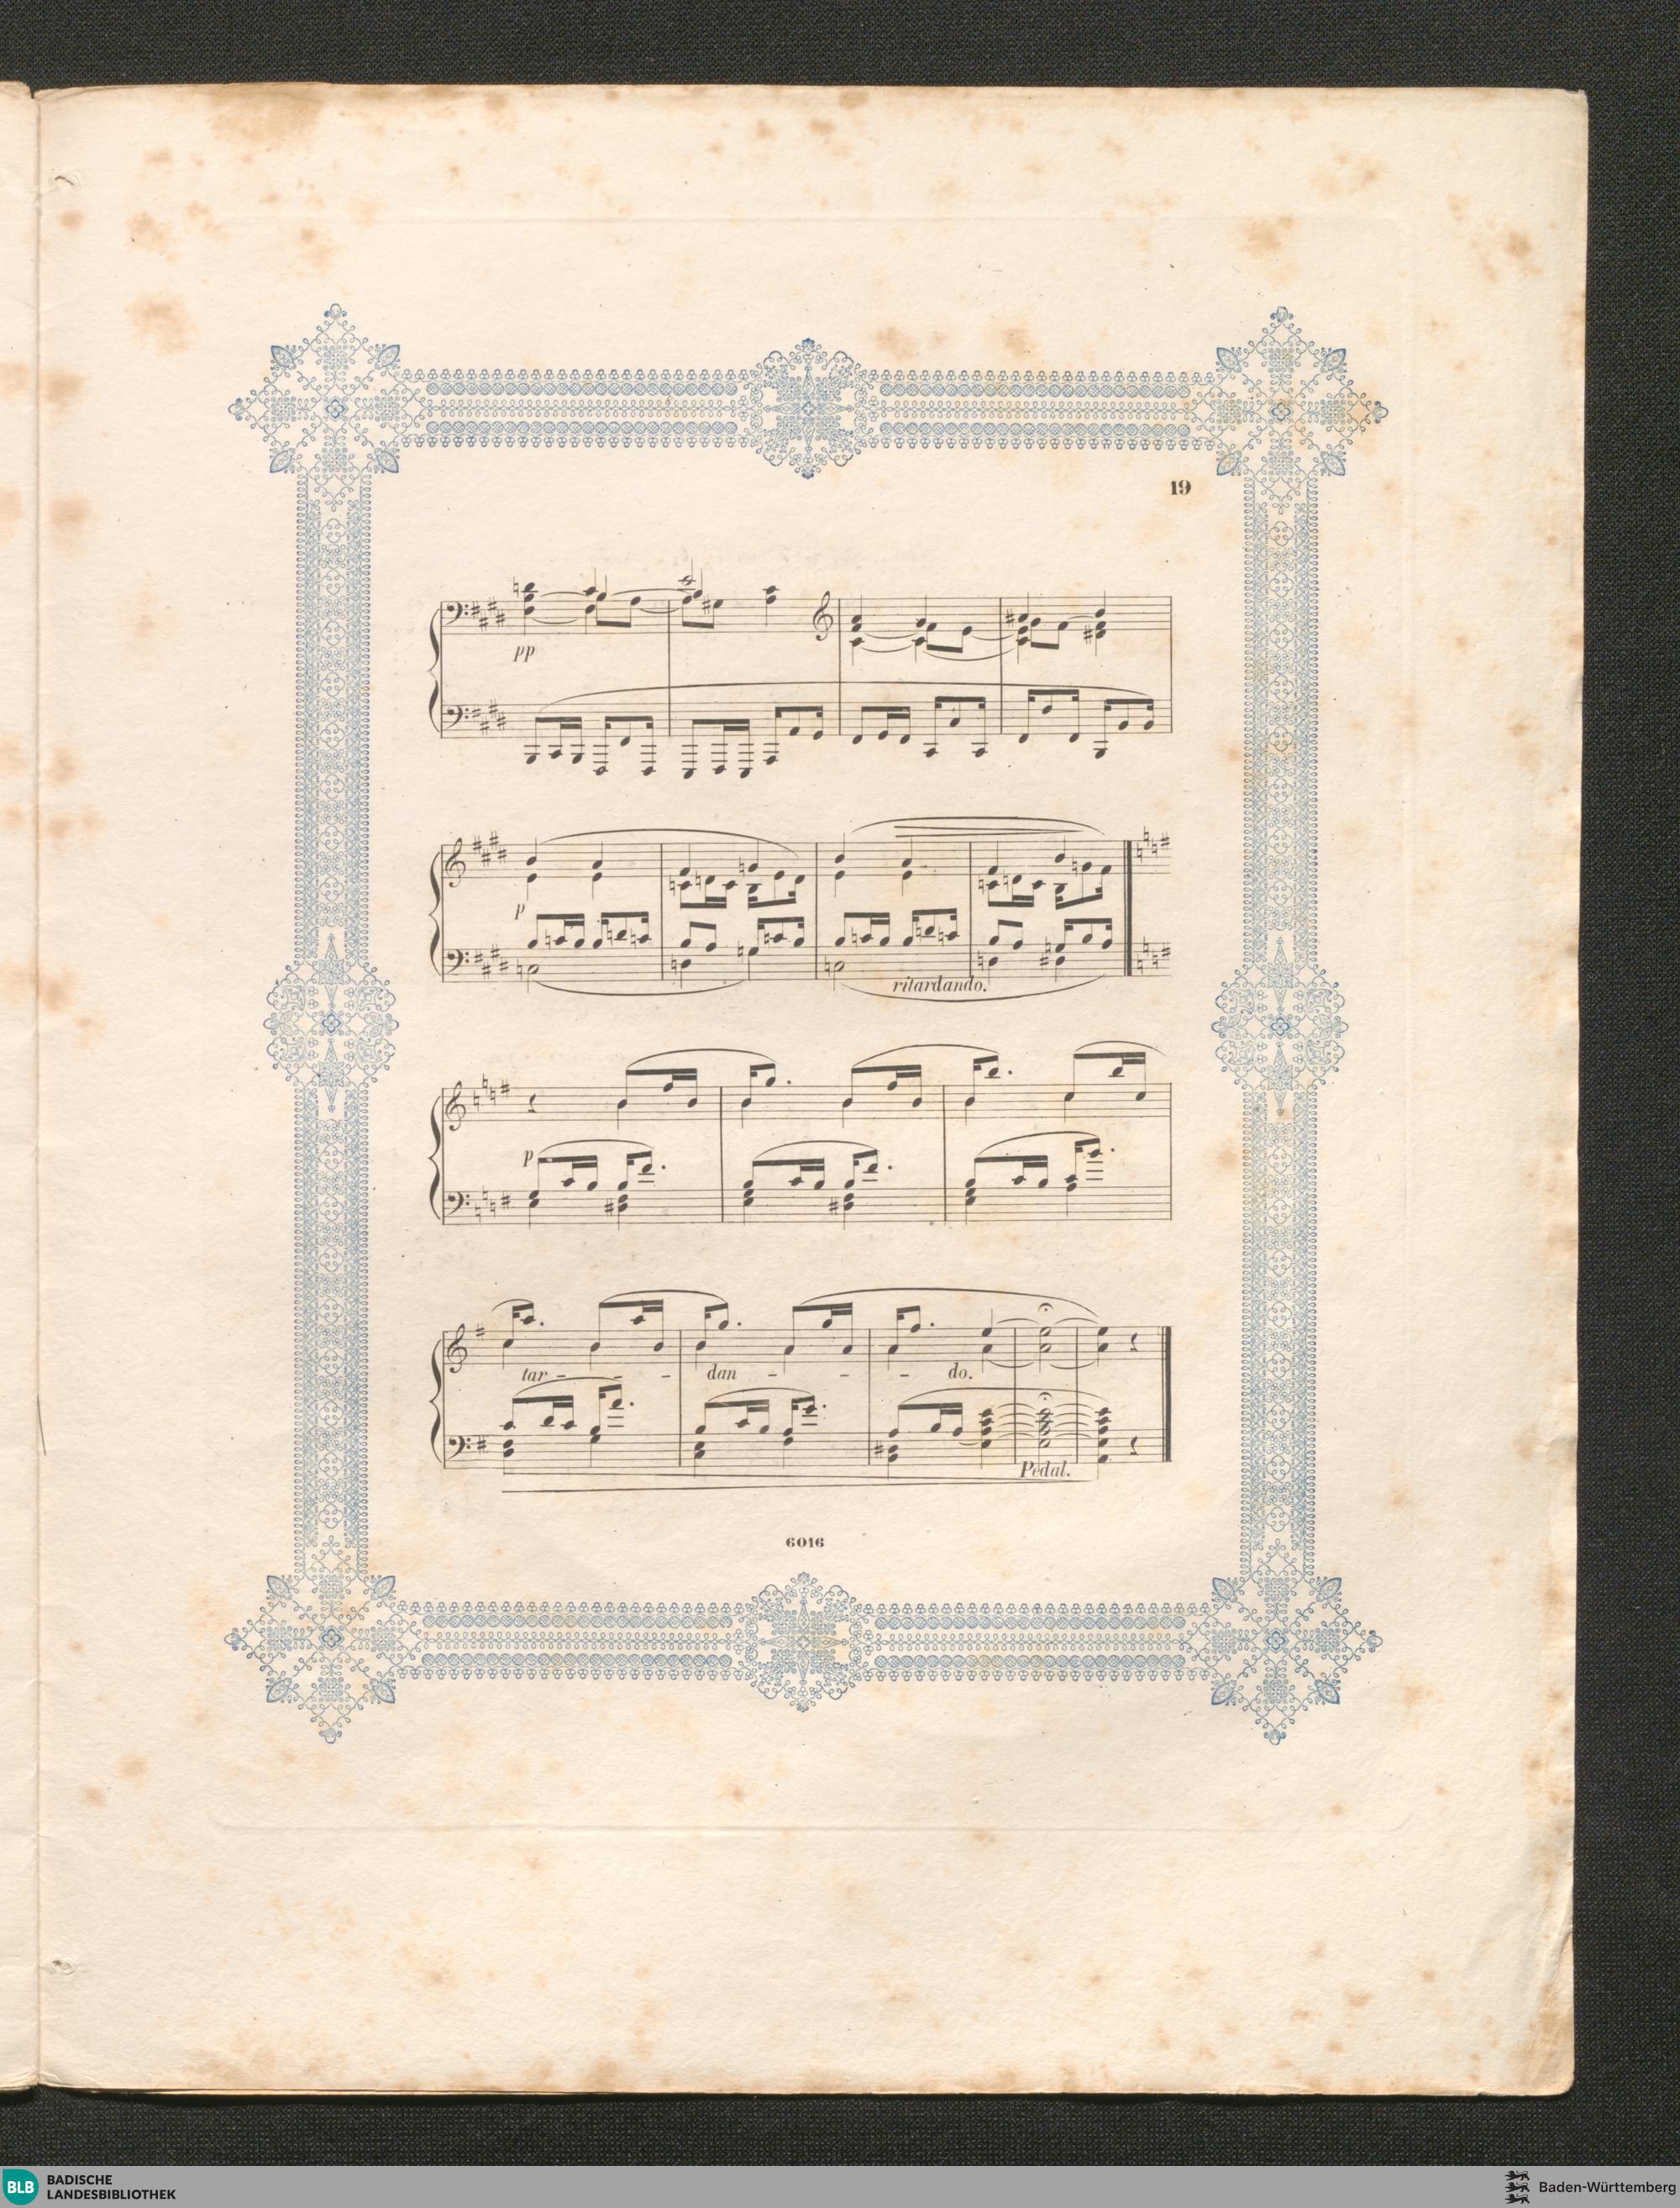 19
pp
p
ritardando.
p
tar - - - dan - - - do.
Pedal.
6016
BLB BADISCHE
LANDESBIBLIOTHEK
Baden-Württemberg